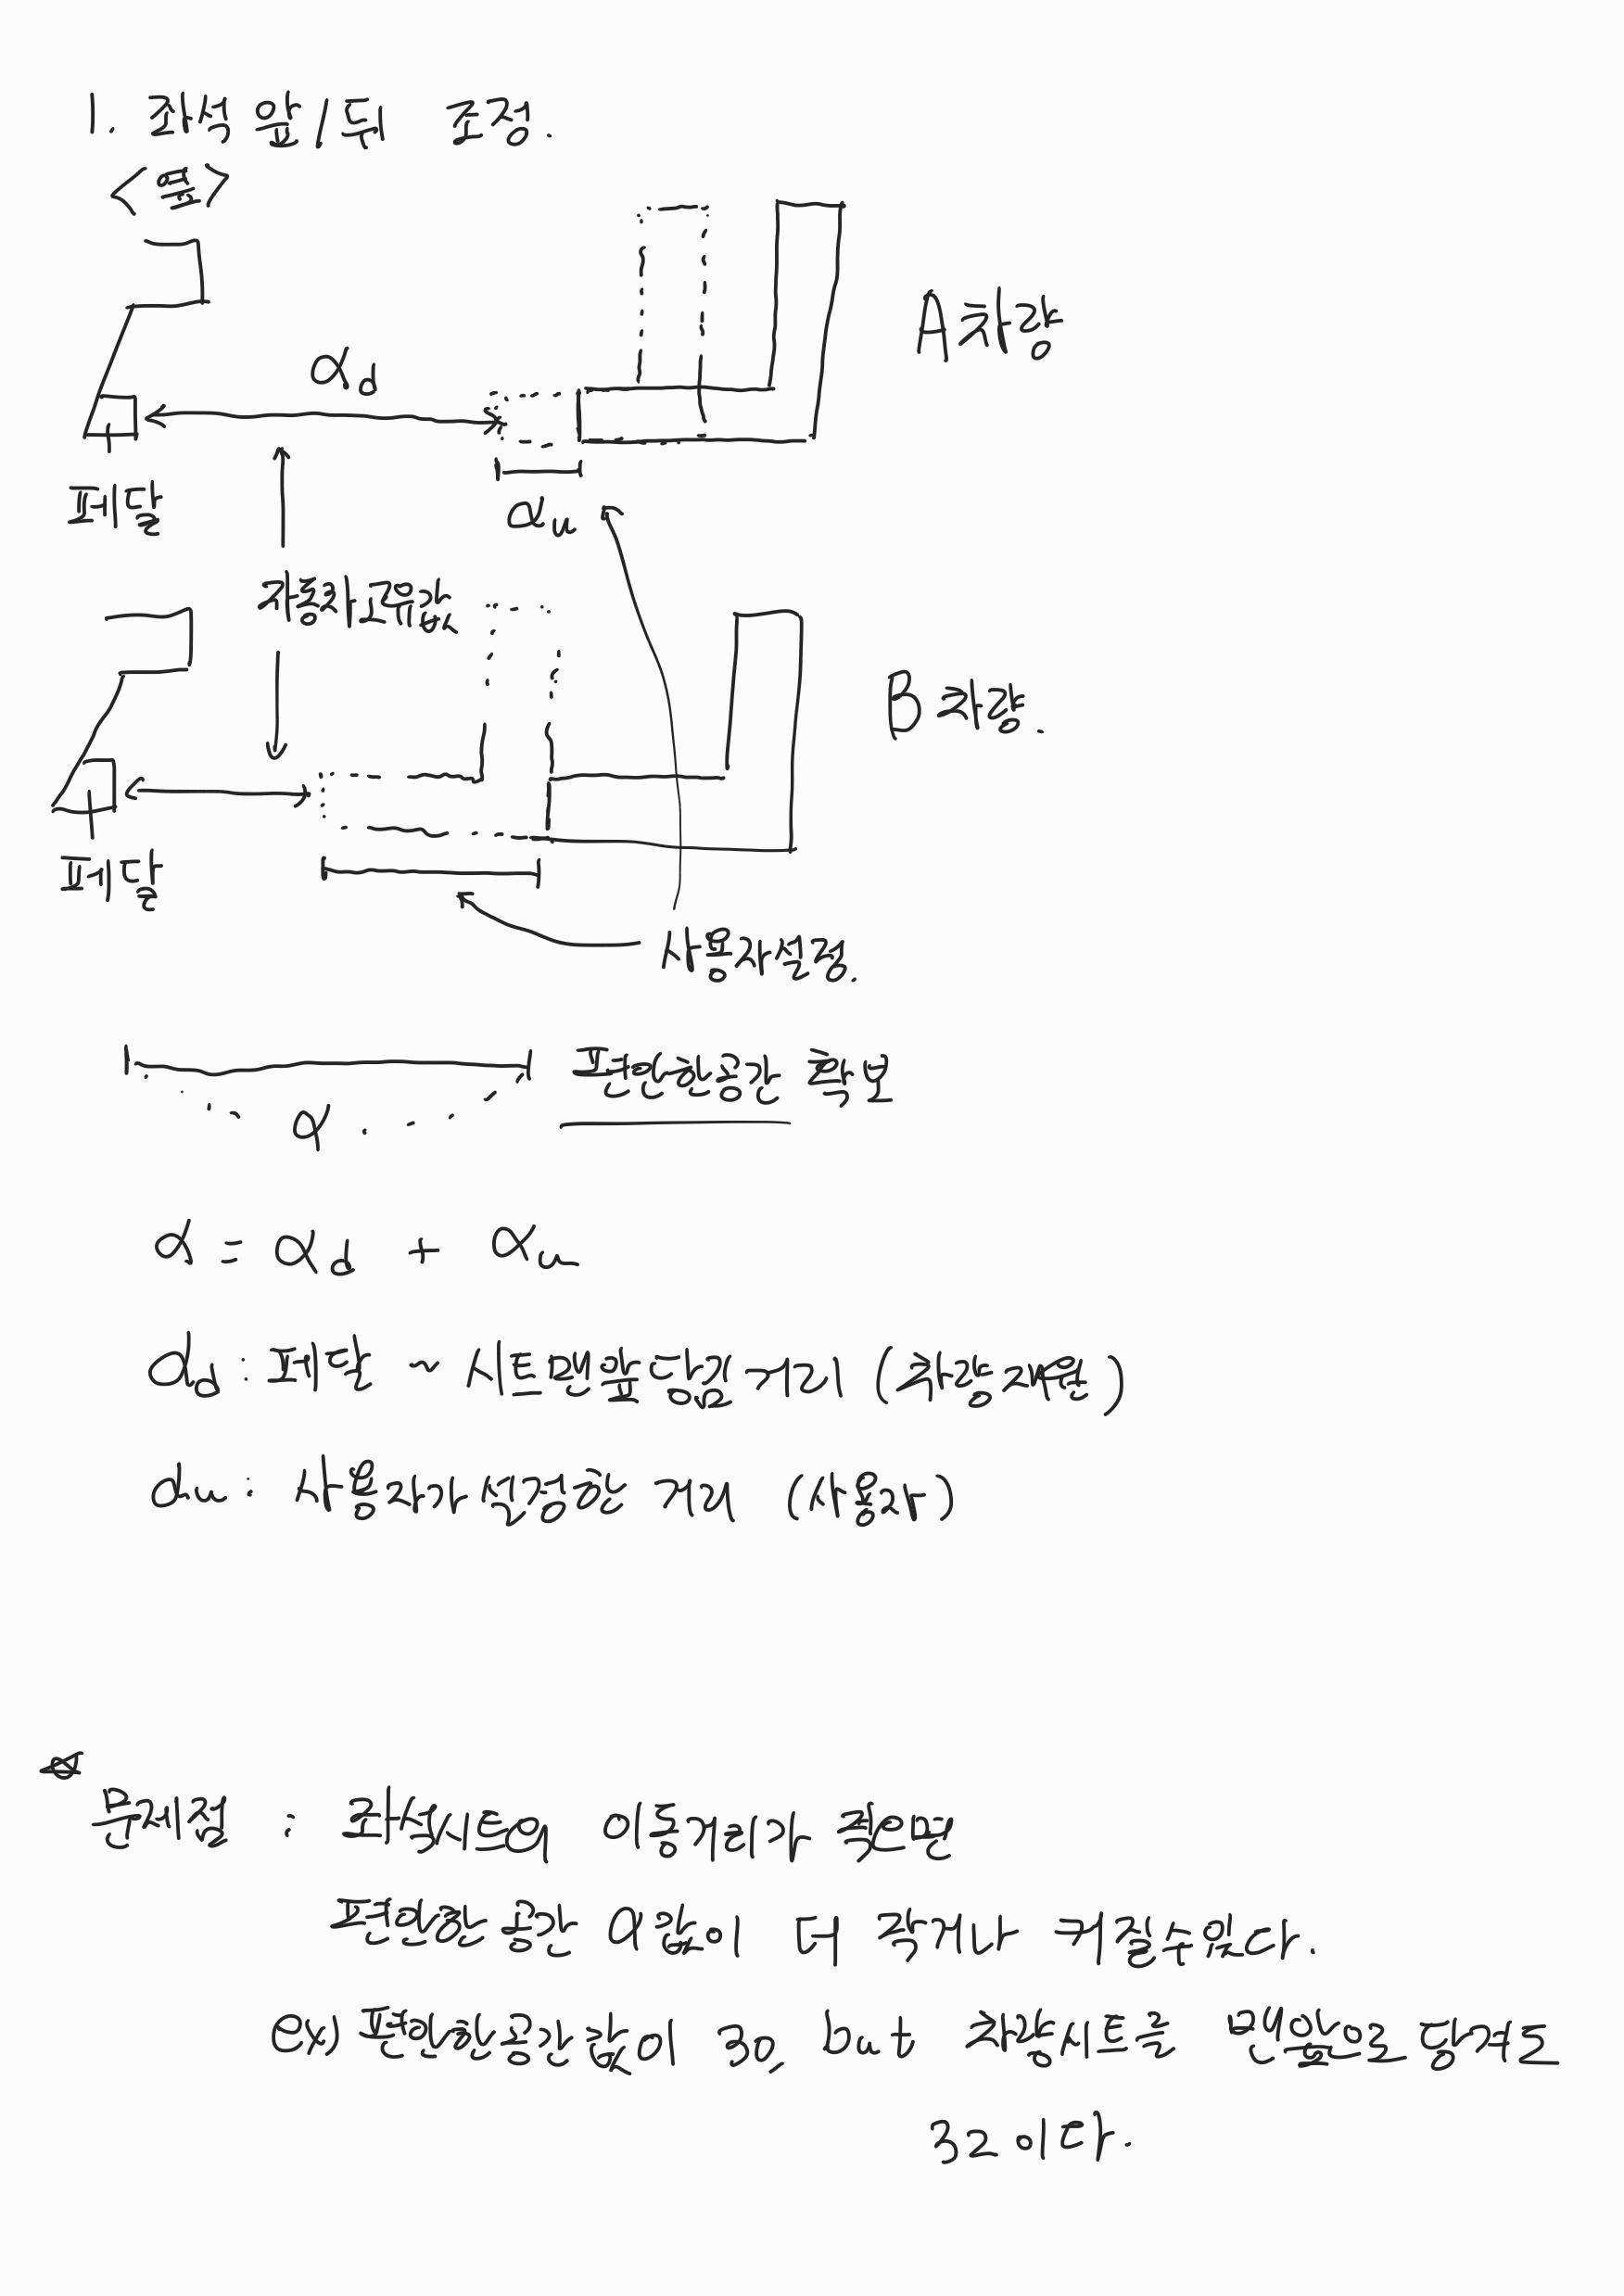 1. 좌석 앞/뒤 조정.
<폼>
A차량
αd
페달
αu
자동차고유값
B차량.
페달
사용자설정.
편안한공간 확보
α
α = αd + αu
αd : 페달 ~ 시트맨앞당긴거리 (차량제원)
αu : 사용자가 설정한 거리 (사용자)
문제점 : 좌석시트의 이동거리가 좁으면
편안한 공간 α값이 더 작거나 커질수있다.
ex) 편안한공간값이 30, but 차량시트를 맨앞으로당겨도
32이다.